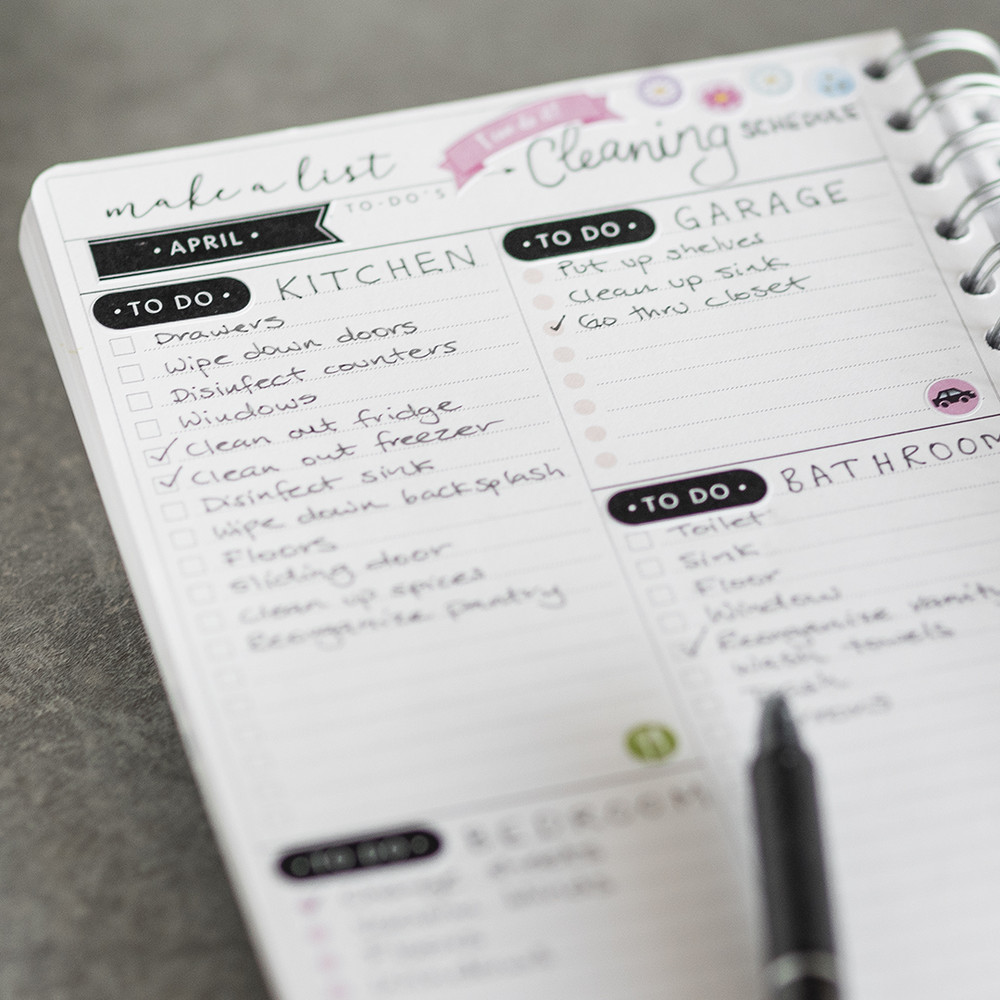 make a list
TO-DO'S
I can do it!
Cleaning SCHEDULE
• APRIL •
• TO DO • KITCHEN
Drawers
Wipe down doors
Disinfect counters
Windows
✓ Clean out fridge
✓ Clean out freezer
Disinfect sink
Wipe down backsplash
Floors
Sliding door
Clean up spices
Reorganize pantry
• TO DO • GARAGE
Put up shelves
Clean up sink
✓ Go thru closet
• TO DO • BATHROOM
Toilet
Sink
Floor
Window
✓ Reorganize vanity
Wash towels
TO DO BEDROOM